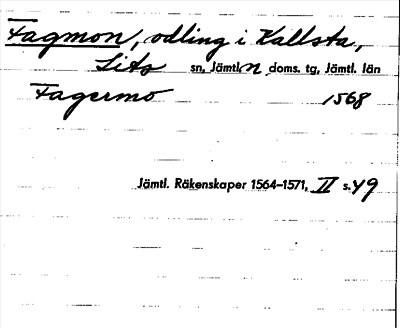 Fagmon, odling i Kallsta,
Lits sn, Jämtl. n. doms. tg, Jämtl. län
Fagermo 1568
Jämtl. Räkenskaper 1564–1571, II s. 49